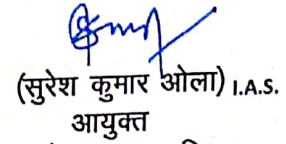 (सुरेश कुमार ओला) I.A.S.
आयुक्त